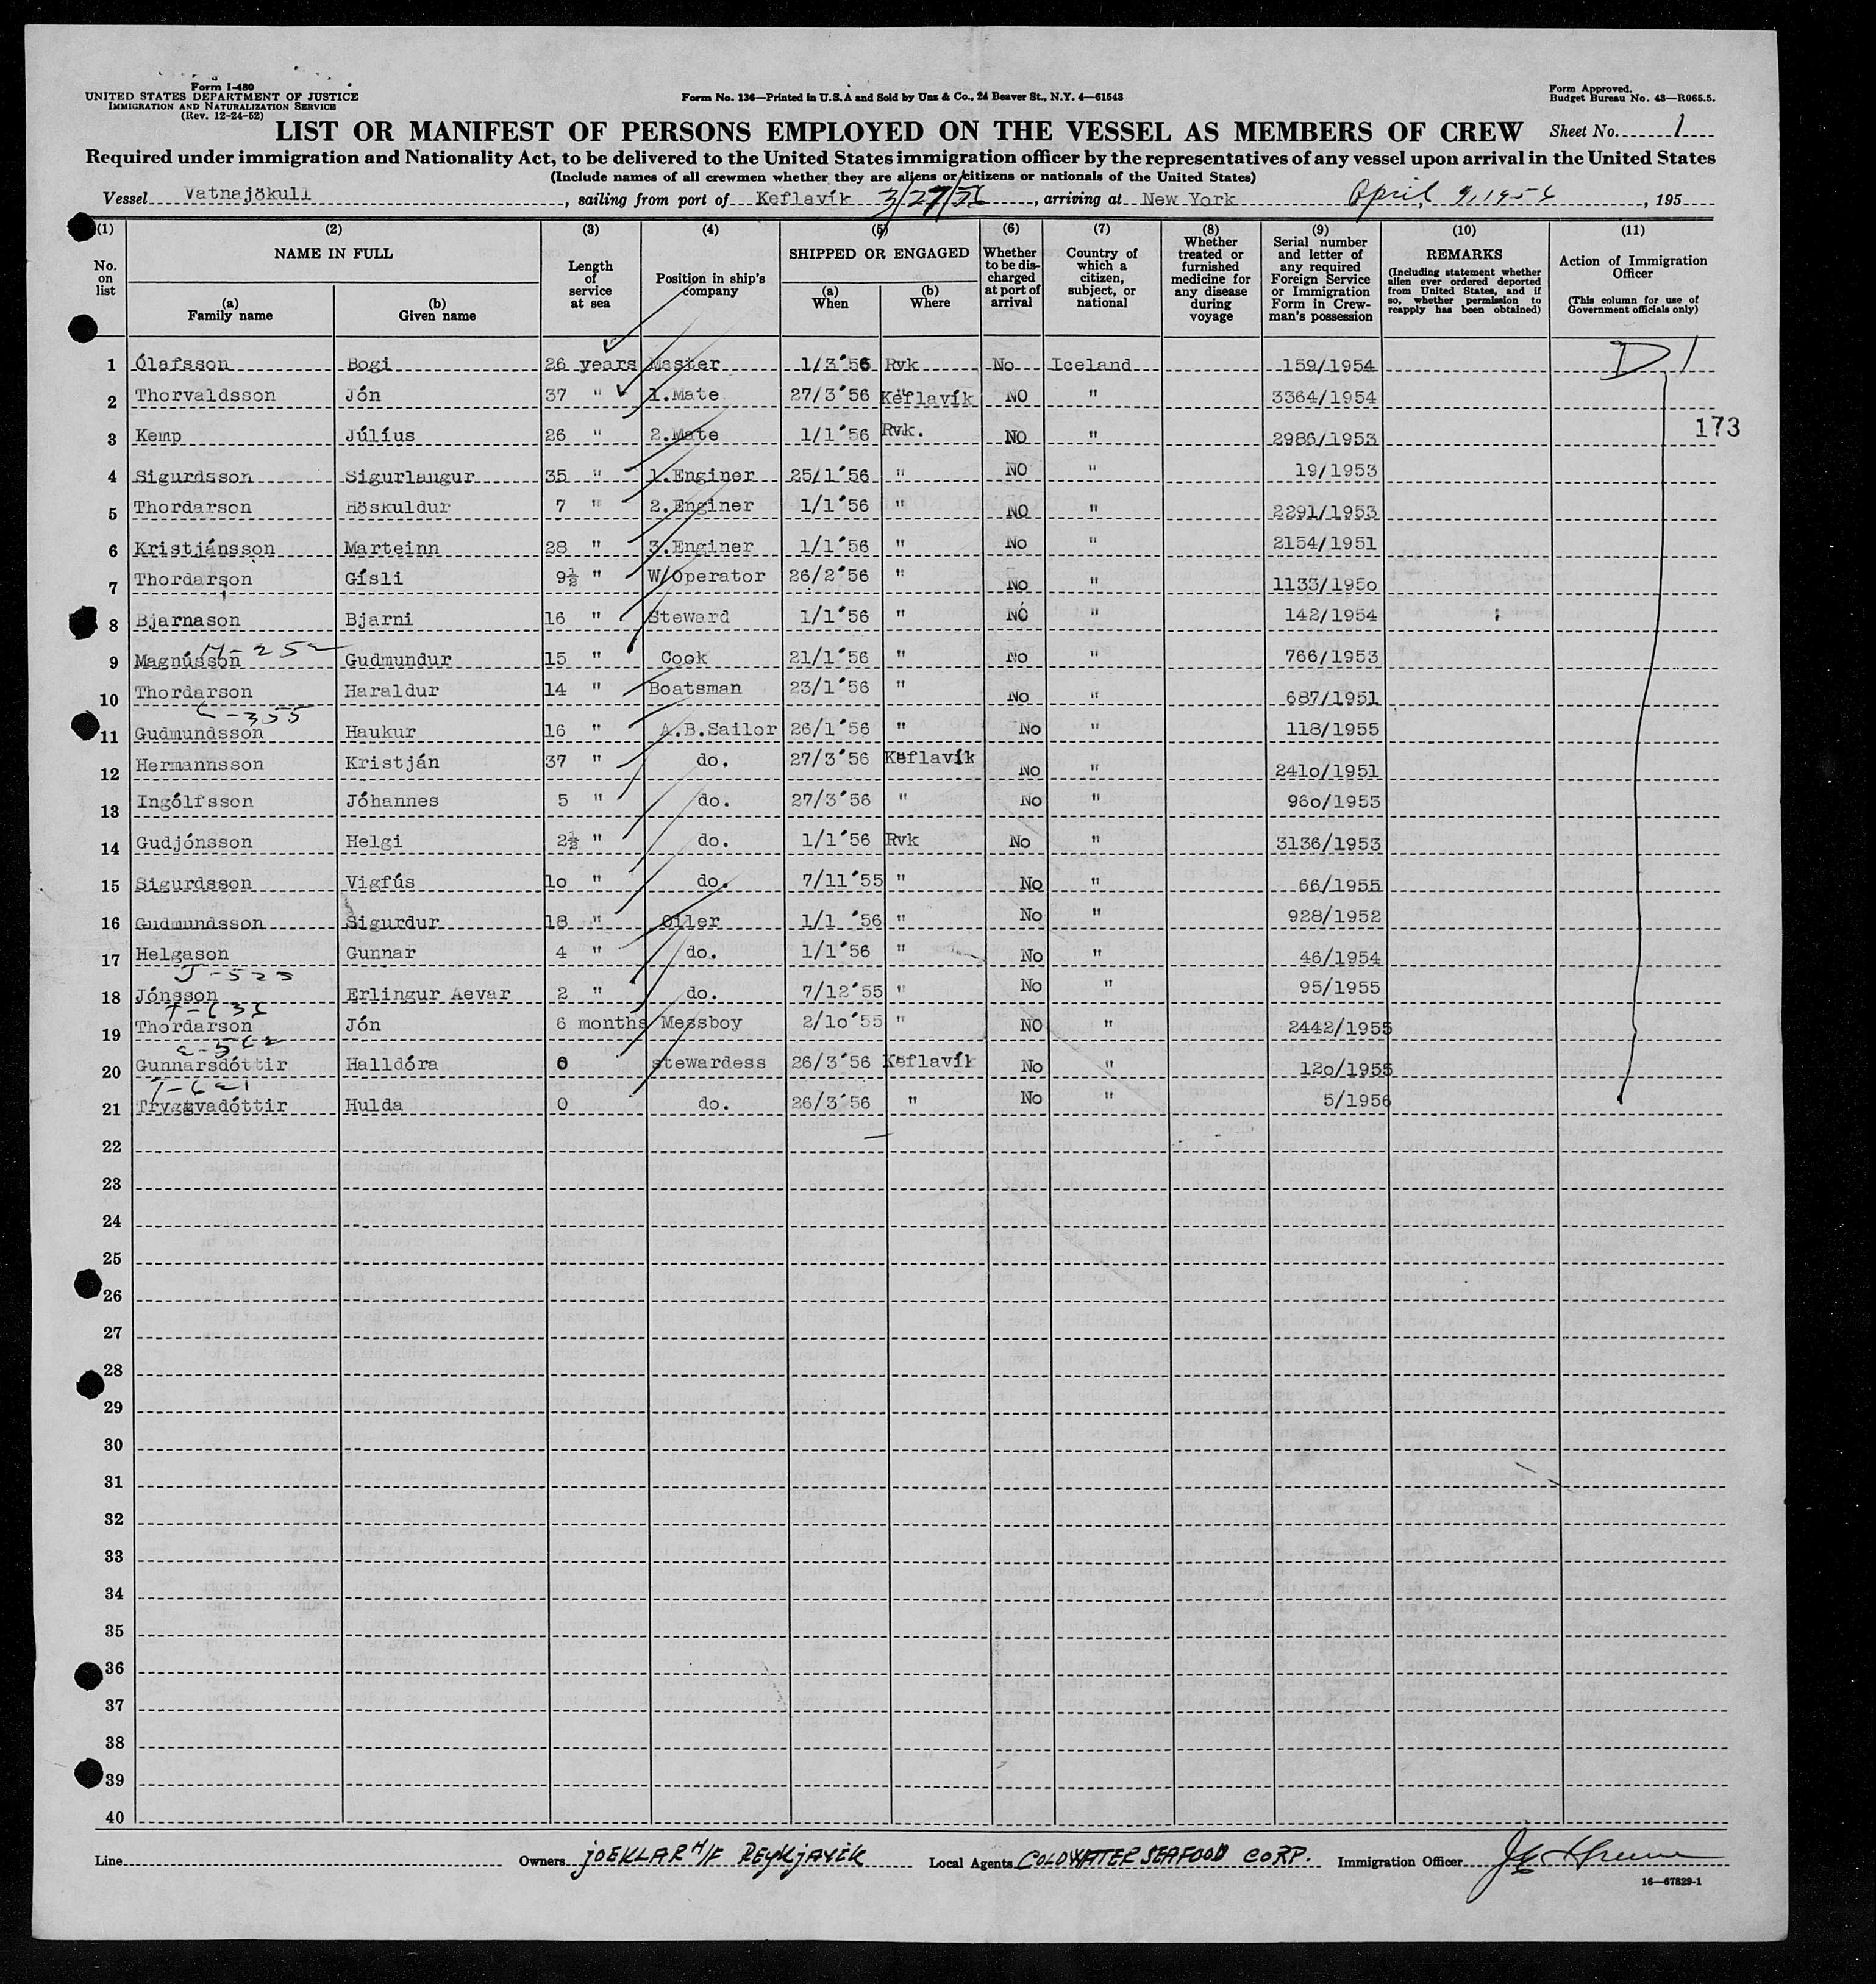 Form I-480
UNITED STATES DEPARTMENT OF JUSTICE
IMMIGRATION AND NATURALIZATION SERVICE
(Rev. 12-24-52)
Form No. 136—Printed in U.S.A and Sold by Unz & Co., 24 Beaver St., N.Y. 4—61543
Form Approved.
Budget Bureau No. 43—R065.5.
LIST OR MANIFEST OF PERSONS EMPLOYED ON THE VESSEL AS MEMBERS OF CREW Sheet No. 1
Required under immigration and Nationality Act, to be delivered to the United States immigration officer by the representatives of any vessel upon arrival in the United States
(Include names of all crewmen whether they are aliens or citizens or nationals of the United States)
Vessel Vatnajökull, sailing from port of Keflavík 3/27/56, arriving at New York April 9, 1956, 195
(1) No. on list
(2) NAME IN FULL (a) Family name (b) Given name
(3) Length of service at sea
(4) Position in ship's company
(5) SHIPPED OR ENGAGED (a) When (b) Where
(6) Whether to be discharged at port of arrival
(7) Country of which a citizen, subject, or national
(8) Whether treated or furnished medicine for any disease during voyage
(9) Serial number and letter of any required Foreign Service or Immigration Form in Crewman's possession
(10) REMARKS (Including statement whether alien ever ordered deported from United States, and if so, whether permission to reapply has been obtained)
(11) Action of Immigration Officer (This column for use of Government officials only)
1 Ólafsson Bogi 26 years Master 1/3'56 Rvk No Iceland 159/1954 D 1
2 Thorvaldsson Jón 37 " 1.Mate 27/3'56 Keflavík NO " 3364/1954
173
3 Kemp Júlíus 26 " 2.Mate 1/1'56 Rvk. NO " 2986/1953
4 Sigurdsson Sigurlaugur 35 " 1.Enginer 25/1'56 " NO " 19/1953
5 Thordarson Höskuldur 7 " 2.Enginer 1/1'56 " NO " 2291/1953
6 Kristjánsson Marteinn 28 " 3.Enginer 1/1'56 " No " 2154/1951
7 Thordarson Gísli 9½ " W/Operator 26/2'56 " No " 1133/1950
8 Bjarnason Bjarni 16 " Steward 1/1'56 " NO " 142/1954
M-252
9 Magnússon Gudmundur 15 " Cook 21/1'56 " No " 766/1953
10 Thordarson Haraldur 14 " Boatsman 23/1'56 " No " 687/1951
-355
11 Gudmundsson Haukur 16 " A.B.Sailor 26/1'56 " No " 118/1955
12 Hermannsson Kristján 37 " do. 27/3'56 Keflavík No " 2410/1951
13 Ingólfsson Jóhannes 5 " do. 27/3'56 " No " 960/1953
14 Gudjónsson Helgi 2½ " do. 1/1'56 Rvk No " 3136/1953
15 Sigurdsson Vigfús 10 " do. 7/11'55 " No " 66/1955
16 Gudmundsson Sigurdur 18 " Oiler 1/1 '56 " No " 928/1952
17 Helgason Gunnar 4 " do. 1/1'56 " No " 46/1954
J-525
18 Jónsson Erlingur Aevar 2 " do. 7/12'55 " No " 95/1955
T-636
19 Thordarson Jón 6 months Messboy 2/10'55 " NO " 2442/1955
20 Gunnarsdóttir Halldóra 0 stewardess 26/3'56 Keflavík No " 120/1955
T-621
21 Tryggvadóttir Hulda 0 do. 26/3'56 " No " 5/1956
22
23
24
25
26
27
28
29
30
31
32
33
34
35
36
37
38
39
40
Line Owners JOEKLAR H/F REYKJAVIK Local Agents COLDWATER SEAFOOD CORP. Immigration Officer
16—67829-1